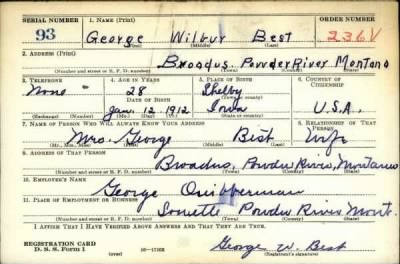 SERIAL NUMBER 1. NAME (Print) ORDER NUMBER
93 George Wilbur Best 236V
(First) (Middle) (Last)
2. ADDRESS (Print)
Broadus. Powder River Montana
(Number and street or R. F. D. number) (Town) (County) (State)
3. TELEPHONE 4. AGE IN YEARS 5. PLACE OF BIRTH 6. COUNTRY OF CITIZENSHIP
None 28 Shelby
DATE OF BIRTH (Town or county)
Jan. 12 1912 Iowa U.S.A.
(Mo.) (Day) (Yr.) (State or country)
7. NAME OF PERSON WHO WILL ALWAYS KNOW YOUR ADDRESS 8. RELATIONSHIP OF THAT PERSON
Mrs. George Best Wife
(Mr., Mrs., Miss) (First) (Middle) (Last)
9. ADDRESS OF THAT PERSON
Broadus, Powder River, Montana
(Number and street or R. F. D. number) (Town) (County) (State)
10. EMPLOYER'S NAME
George
11. PLACE OF EMPLOYMENT OR BUSINESS
Sonette Powder River Mont.
(Number and street or R. F. D. number) (Town) (County) (State)
I AFFIRM THAT I HAVE VERIFIED ABOVE ANSWERS AND THAT THEY ARE TRUE.
REGISTRATION CARD
D. S. S. Form 1 George W. Best
(Registrant's signature)